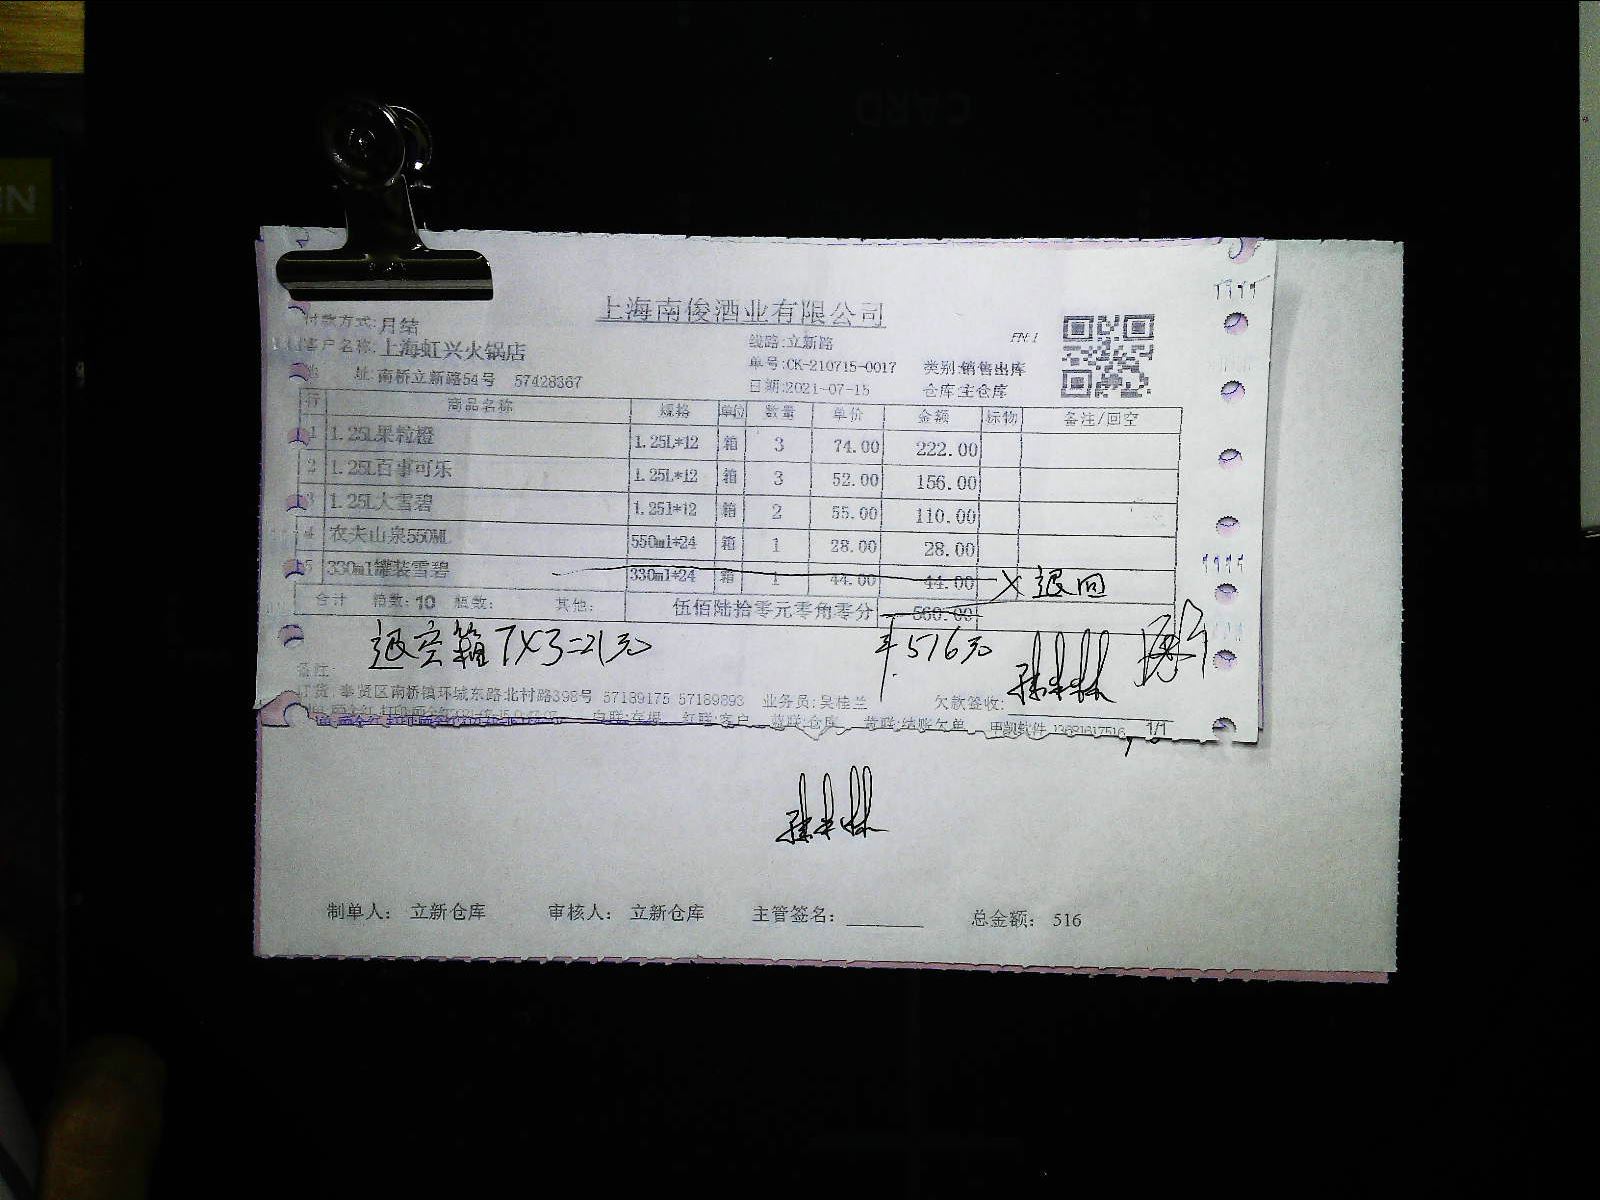 CARD
IN
上海南俊酒业有限公司
付款方式:月结
线路:立新路
FN:1
客户名称:上海虹兴火锅店
单号:CK-210715-0017 类别:销售出库
地 址:南桥立新路54号 57428367
日期:2021-07-15 仓库:主仓库
行 商品名称 规格 单位 数量 单价 金额 标物 备注/回空
1 1.25L果粒橙 1.25L*12 箱 3 74.00 222.00
2 1.25L百事可乐 1.25L*12 箱 3 52.00 156.00
3 1.25L大雪碧 1.25l*12 箱 2 55.00 110.00
4 农夫山泉550ML 550ml*24 箱 1 28.00 28.00
5 330ml罐装雪碧 330ml*24 箱 1 44.00 44.00 X 退回
合计 箱数: 10 瓶数: 其他: 伍佰陆拾零元零角零分 560.00
退空箱 7X3=21元 ¥516元
备注:
订货: 奉贤区南桥镇环城东路北村路398号 57189175 57189893 业务员:吴桂兰 欠款签收:
白联:存根 红联:客户 蓝联:仓库 黄联:结账欠单 甲凯软件 13681617516 1/1
制单人: 立新仓库 审核人: 立新仓库 主管签名: 总金额: 516